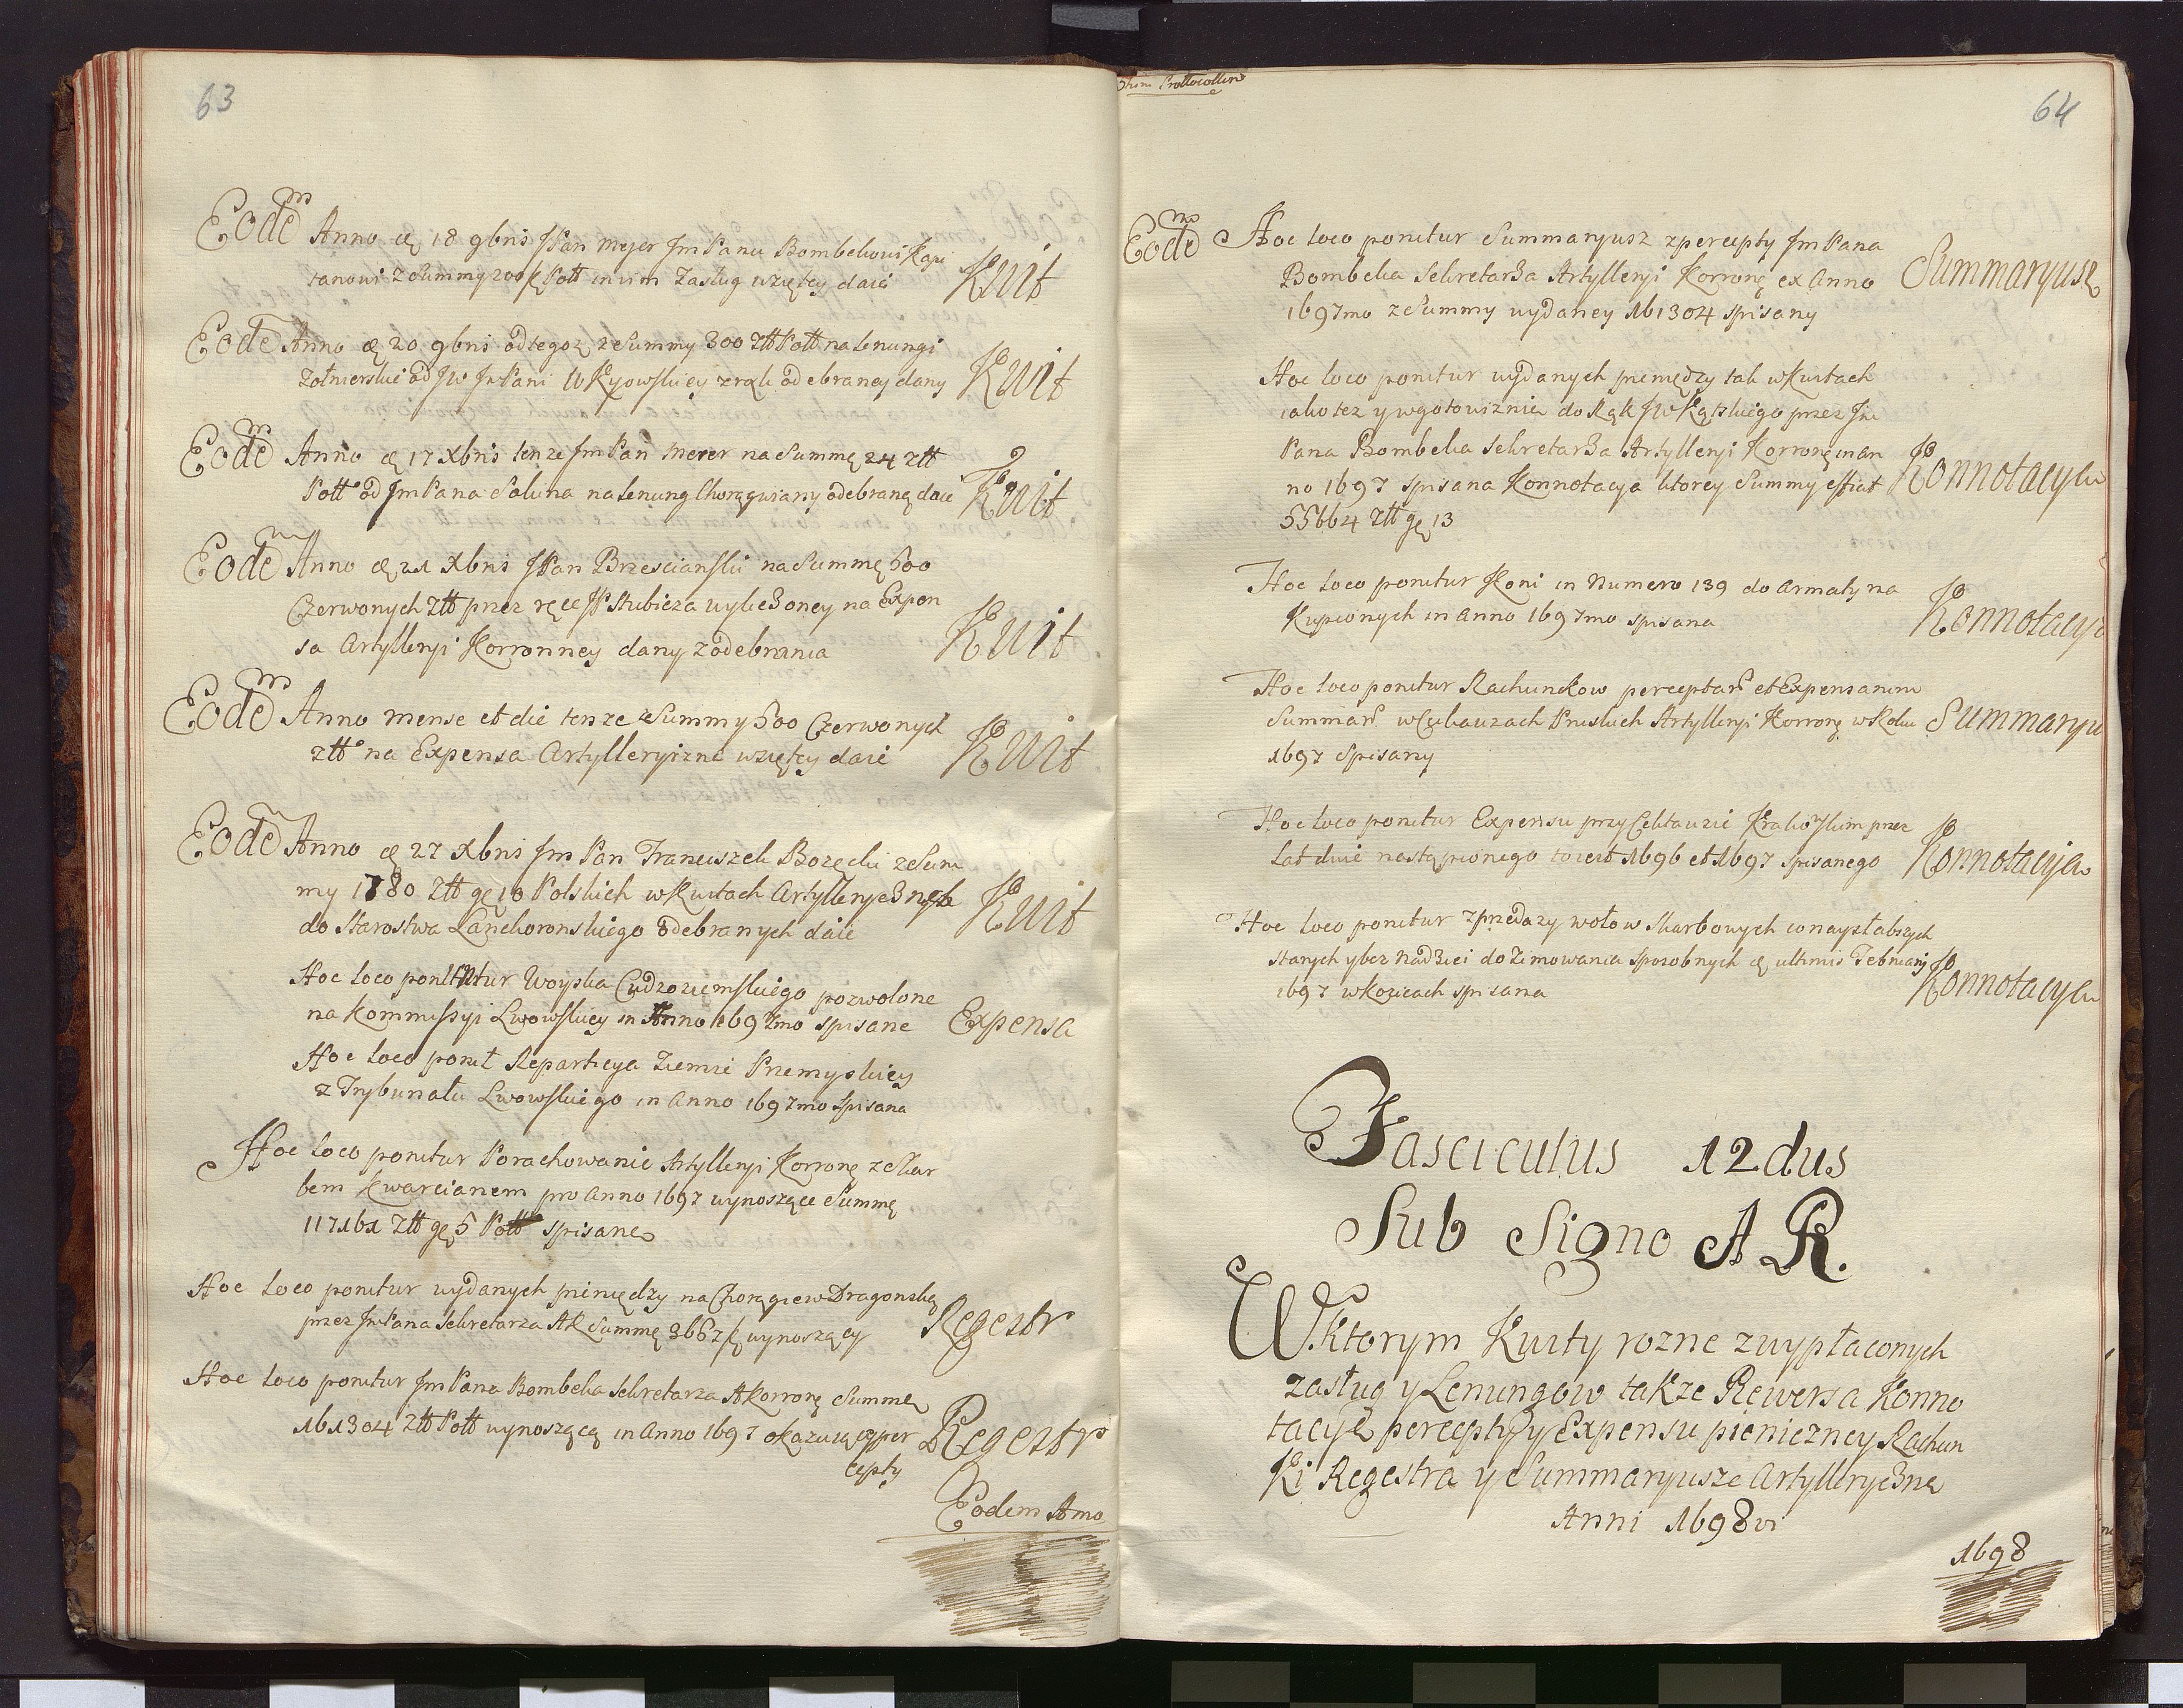 63
Eodem Anno d 18 9bris JPan Mejer Jm Panu Bombekowi Kapi
tanowi z Summy 200 Pott in vim Zasług wziętey daie Kwit
Eode Anno d 20 9bris od tegoz z Summy 300 Ztt Pott na lenungi
Zołnierskie od JW JmPani WKyowskiey z rąk odebraney dany Kwit
Eodem Anno d 17 Xbris tenze Jm Pan Meyer na Summę 24 ztt
Pott od Jm Pana na lenung Chorągwiany odebraną daie Kwit
Eodem Anno d 21 Xbris JPan Brzescianski na Summę 500
Czerwonych Ztt przez ręce JP Stubicza wyliczoney na Expen
sa Artylleryi Korronney dany z odebrania Kwit
Eodem Anno mense et die tenze z Summy 500 Czerwonych
ztt na Expensa Artylleryizne wziętey daie Kwit
Eode Anno d 27 Xbris Jm Pan Franciszek Bozęcki z Sum
my 1780 Ztt gę 10 Polskich w Kwitach Artyllerycznych
do Starostwa Lanckoronskiego odebranych daie Kwit
Hoc loco ponitur Woyska Cudzoziemskiego pozwolone
na kommissyi Lwowskiey in Anno 1697mo spisane Expensa
Hoc loco ponit Reparticya Ziemie Przemyskiey
z Trybunału Lwowskiego in Anno 1697mo Spisana
Hoc loco ponitur Porachowanie Artylleryi Korronę z Skar
bem kwarcianem pro Anno 1697 wynoszące Summę
117161 Ztt gę 5 Pott spisane
Hoc loco ponitur wydanych pieniędzy na Chorągiew Dragonską
przez JmPana Sekretarza AK Summę wynoszący Regestr
Hoc loco ponitur Jm Pana Bombeka Sekretarza AKorronę Summę
161304 Ztt Pott wynoszącą in Anno 1697 okazuiący per Regestr
cepty
Eodem Anno
Prottocollum
64
Eodem Hoc loco ponitur Summaryusz z percepty Jm Pana
Bombeka Sekretarza Artylleryi Korronę ex Anno Summaryusz
1697mo z Summy wydaney 161304 spisany
Hoc loco ponitur wydanych pieniędzy tak w kwitach
iako tez y w gotowiznie do Rąk JW Kąskiego przez Jm
Pana Bombeka Sekretarza Artylleryi Korronę in an
no 1697 spisana Konnotacya ktorey Summy efficit Konnotacya
55664 Ztt gę 13
Hoc loco ponitur Koni in Numero 139 do Armaty na
Kupionych in Anno 1697mo spisana Konnotacya
Hoc loco ponitur Rachunkow perceptar et Expensarum
Summar w Cekauzach Pruskich Artylleryi Korronę w Roku Summaryu
1697 Spisany
Hoc loco ponitur Expensu przy Cektauzie Krakowskim przez
Lat dwie nastąpionego to iest 1696 et 1697 spisanego Konnotacya
Hoc loco ponitur zprzedazy wołow Skarbowych co nayslabszych
starych y bez nadziei do Zimowania sposobnych d ultimis Februarij
1697 w Kozicach spisana Konnotacya
Fasciculus 12dus
Sub Signo A R.
W ktorym Kwity rozne z wypłaconych
zasług y Lenungow takze Rewersa Konno
tacye percepty y Expensu pienieznęy Rachun
ki Regestra y Summaryusze Artylleryczne
Anni 1698vi
1698